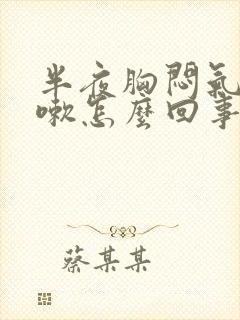 半夜胸悶氣
嗽怎麼回事
蔡某某